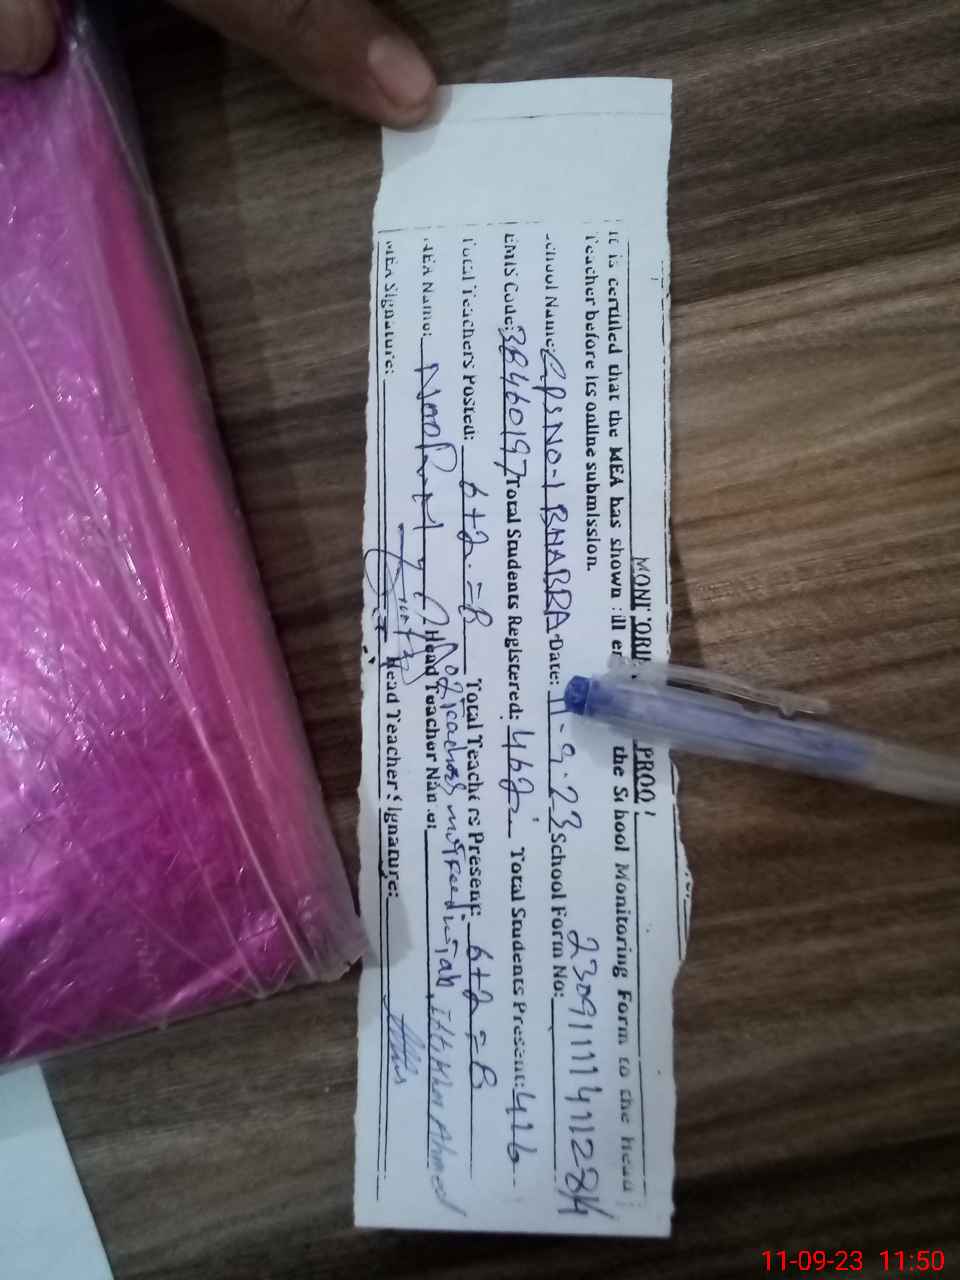 MONITORING PROO
It is certified that the MEA has shown all the School Monitoring Form to the head
Teacher before its online submission.
School Name: GPS NO-1 BHABRA Date: 11-9-23 School Form No: 
EMIS Code: 38460197 Total Students Registered: 462 Total Students Present: 416
Total Teachers Posted: 6+2=8 Total Teachers Present: 6+2=8
02 teachers not feed in tab
MEA Name: Head Teacher Name: Ahmed
MEA Signature: Head Teacher Signature:
11-09-23 11:50